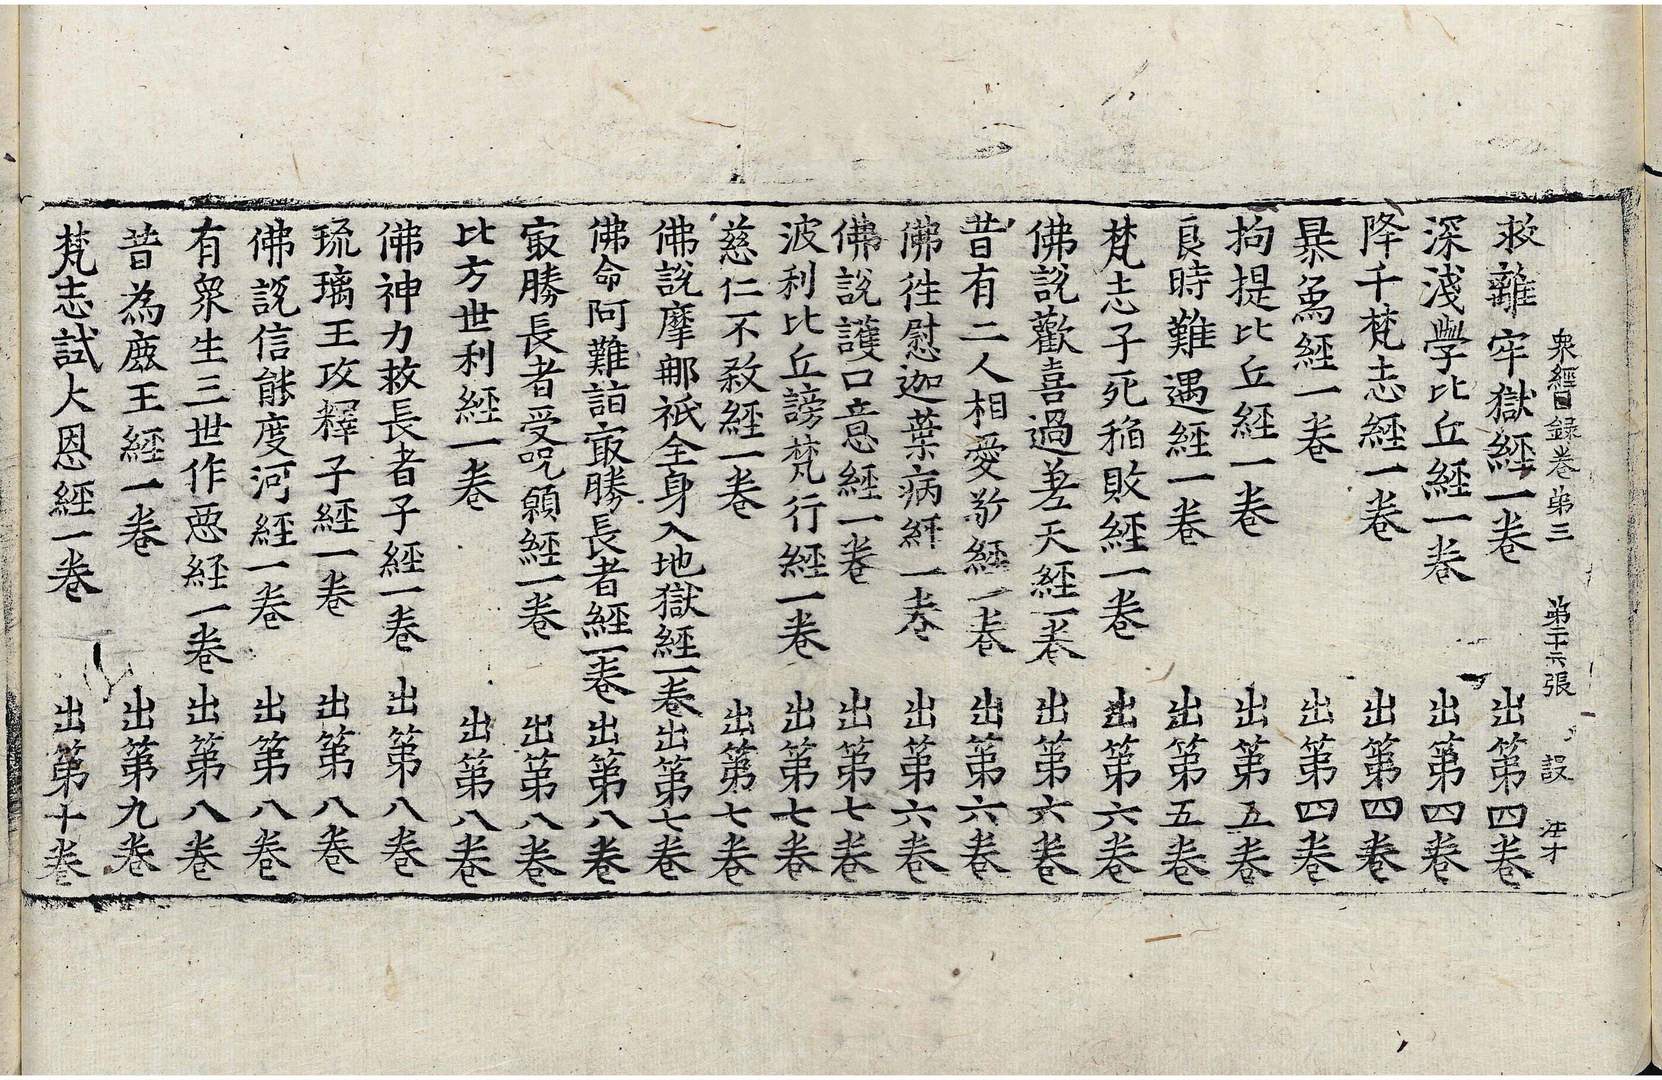 衆經目録卷第三 第二十六張 設 法才
救離牢獄經一卷 出第四卷
深淺學比丘經一卷 出第四卷
降千梵志經一卷 出第四卷
暴象經一卷 出第四卷
拘提比丘經一卷 出第五卷
良時難遇經一卷 出第五卷
梵志子死稻敗經一卷 出第六卷
佛説歡喜過差天經一卷 出第六卷
昔有二人相愛敬經一卷 出第六卷
佛徃慰迦葉病經一卷 出第六卷
佛説護口意經一卷 出第七卷
波利比丘謗梵行經一卷 出第七卷
慈仁不殺經一卷 出第七卷
佛説摩那祇全身入地獄經一卷 出第七卷
佛命阿難詣㝡勝長者經一卷 出第八卷
㝡勝長者受呪願經一卷 出第八卷
比方世利經一卷 出第八卷
佛神力救長者子經一卷 出第八卷
琉璃王攻釋子經一卷 出第八卷
佛説信能度河經一卷 出第八卷
有衆生三世作惡經一卷 出第八卷
昔為鹿王經一卷 出第九卷
梵志試大恩經一卷 出第十卷